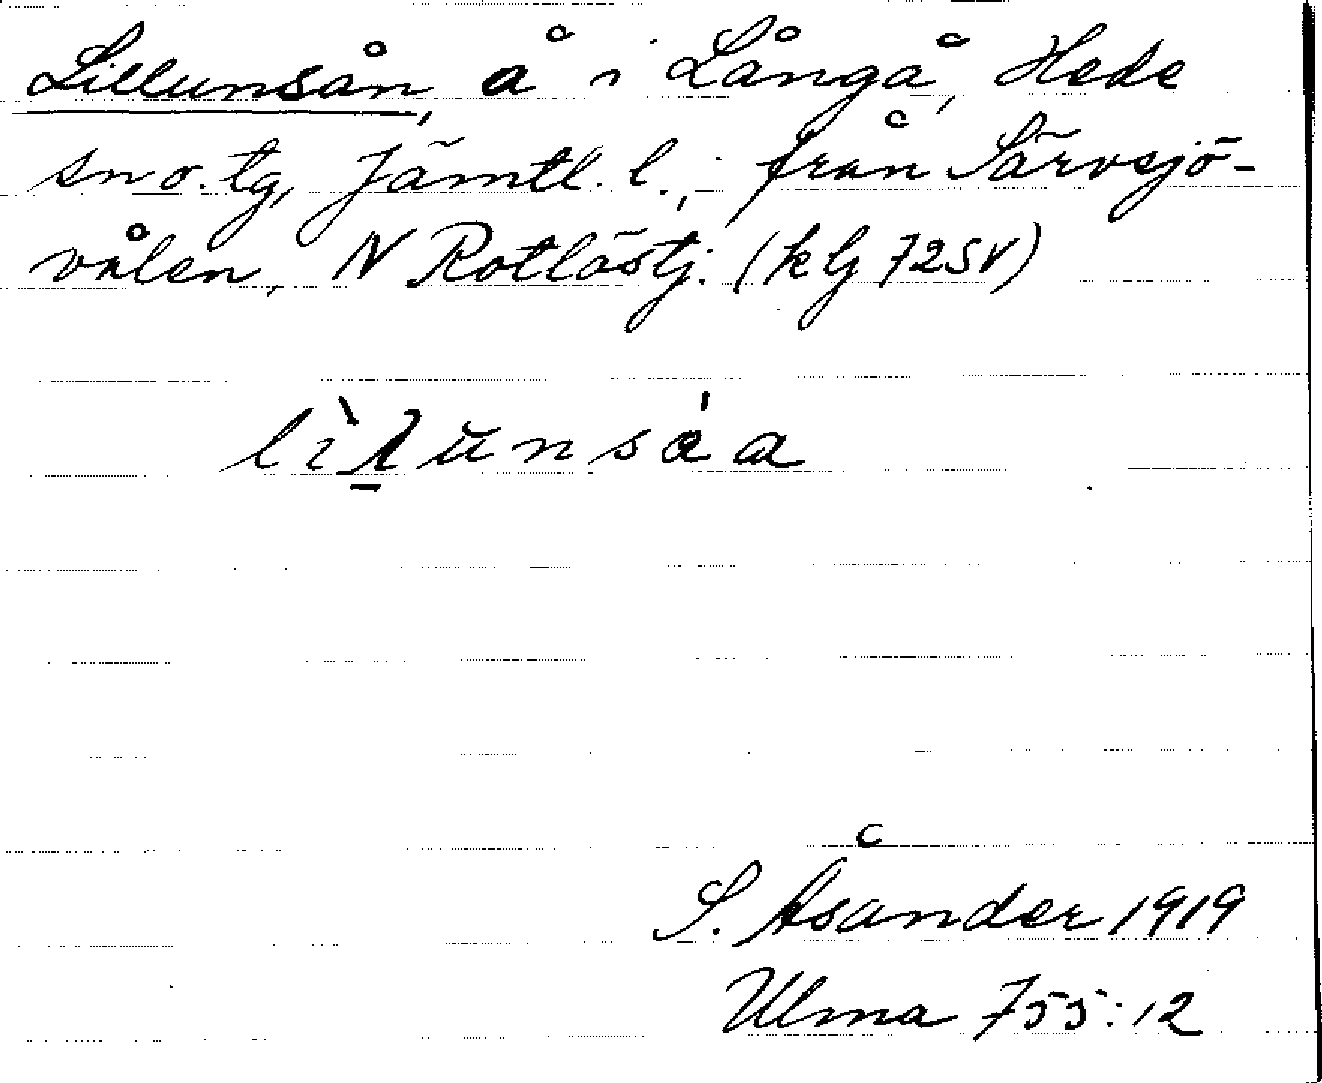 Lillunsån, å i Långå, Hede
sn o. tg, Jämtl. l., från Särvsjö-
vålen, N Rotlöstj. (kbl 72SV)
S. Åsander 1919
Ulma 755:12